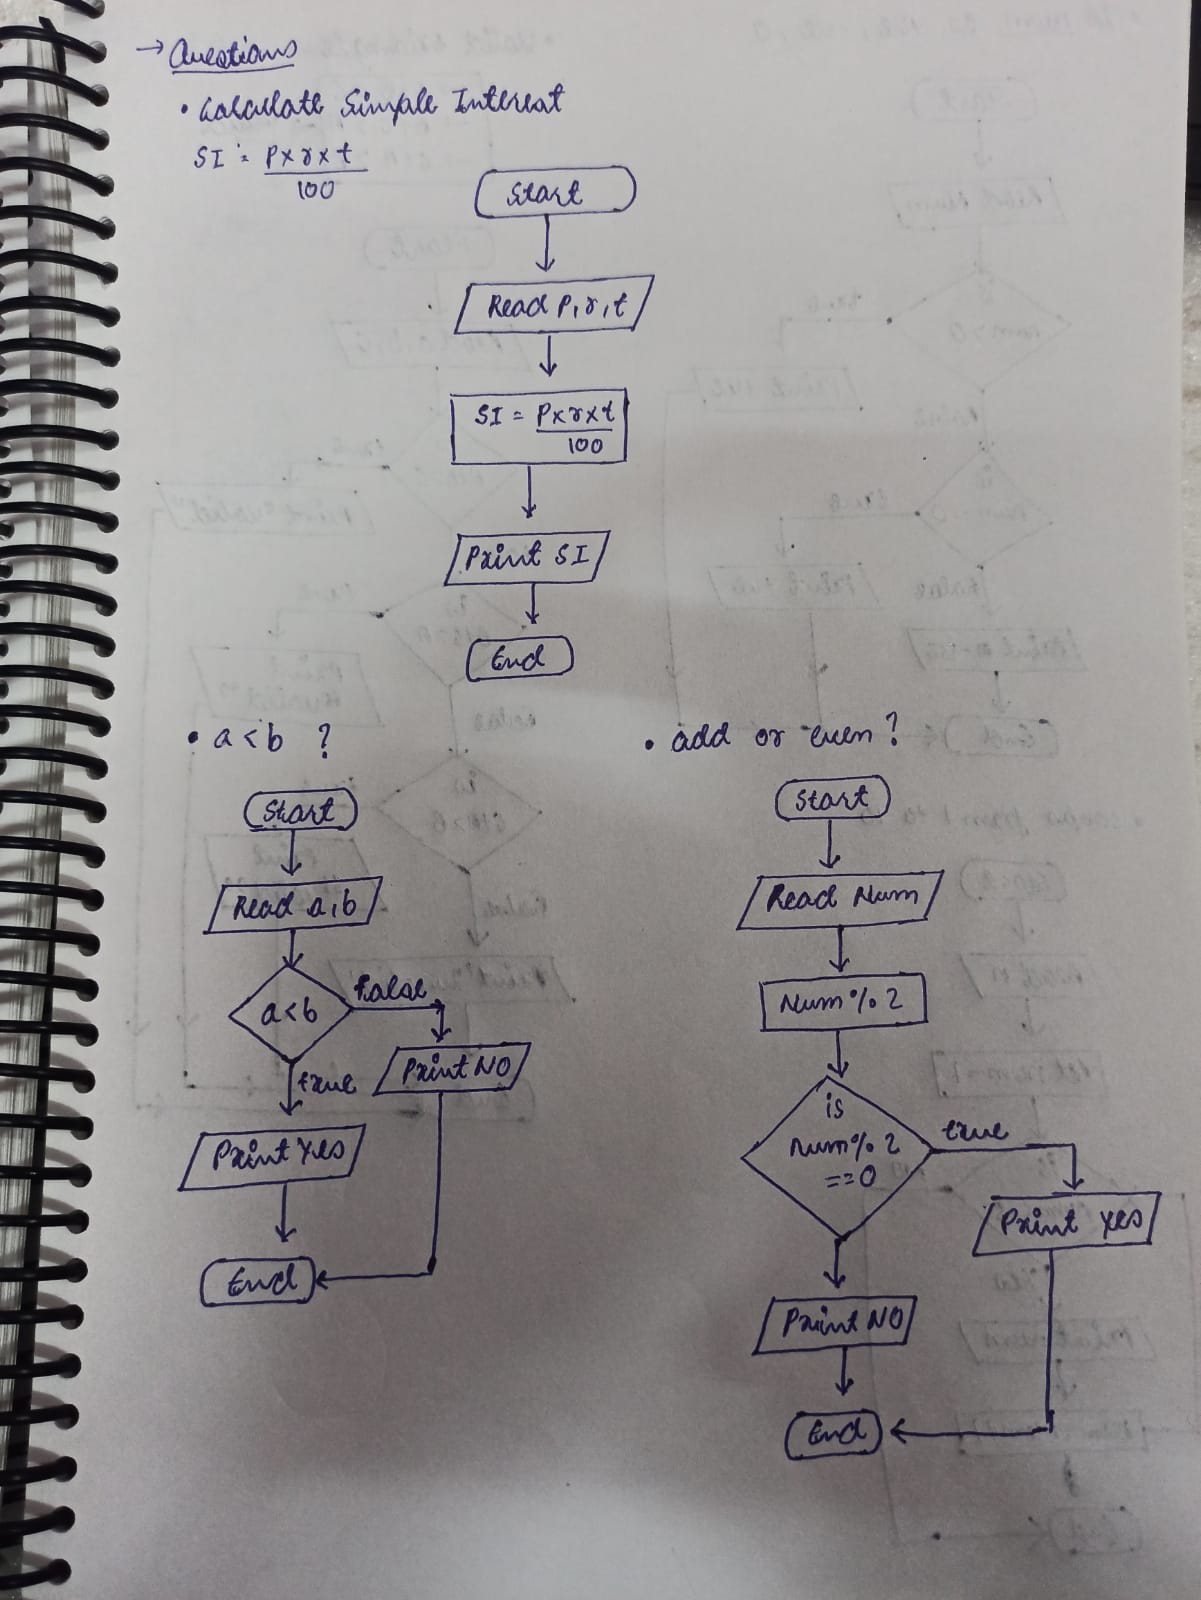 → Questions
• Calculate Simple Interest
SI = p×r×t
100
Start
Read p,r,t
SI = p×r×t
100
Print SI
End
• a<b ?
Start
Read a,b
a<b
false
true
Print NO
Print Yes
End
• add or even?
Start
Read Num
Num % 2
is
num % 2
==0
true
Print yes
Print NO
End